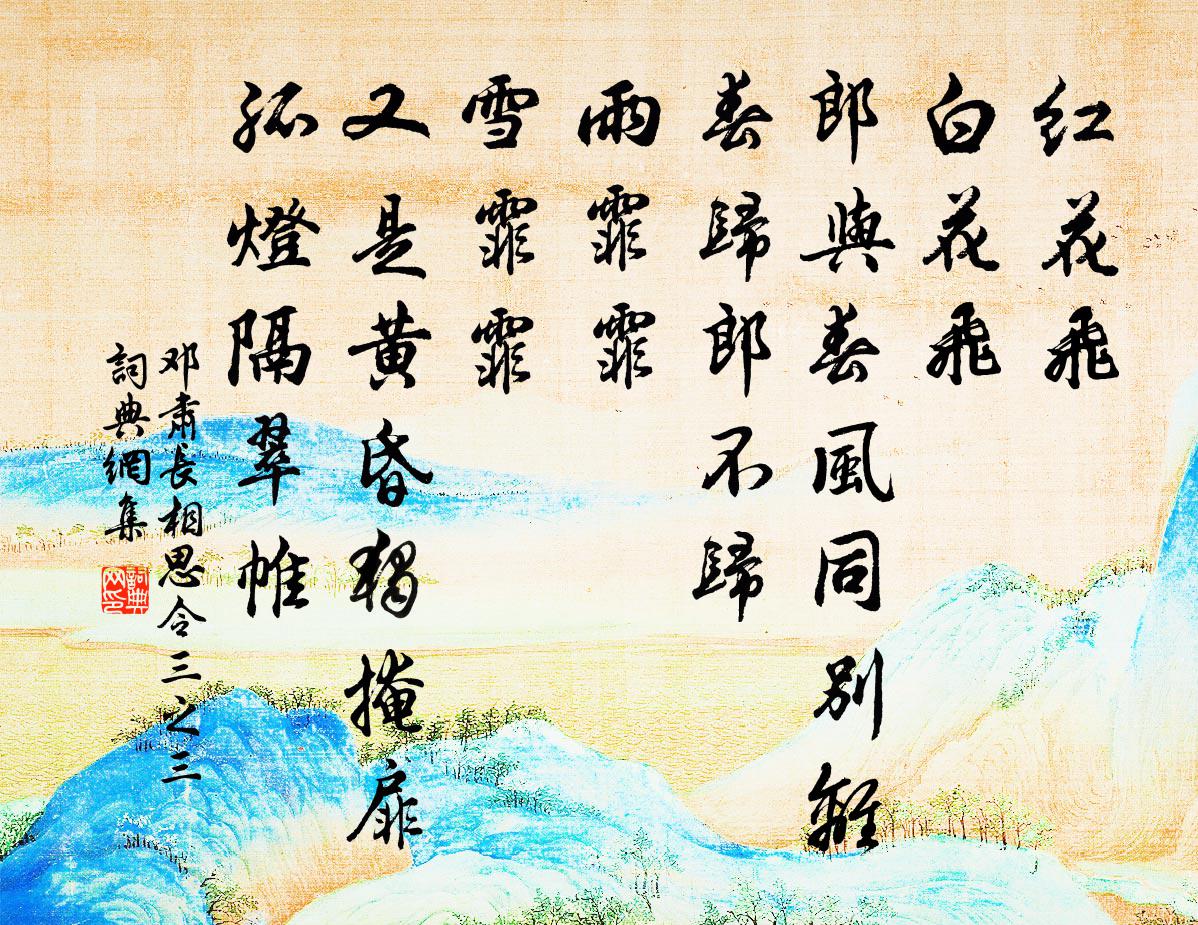 红花飛
白花飛
郎與春風同別離
春歸郎不歸
雨霏霏
雪霏霏
又是黄昏獨掩扉
孤燈隔翠帷
邓肅長相思令三之三
詞典網集
詞典網印